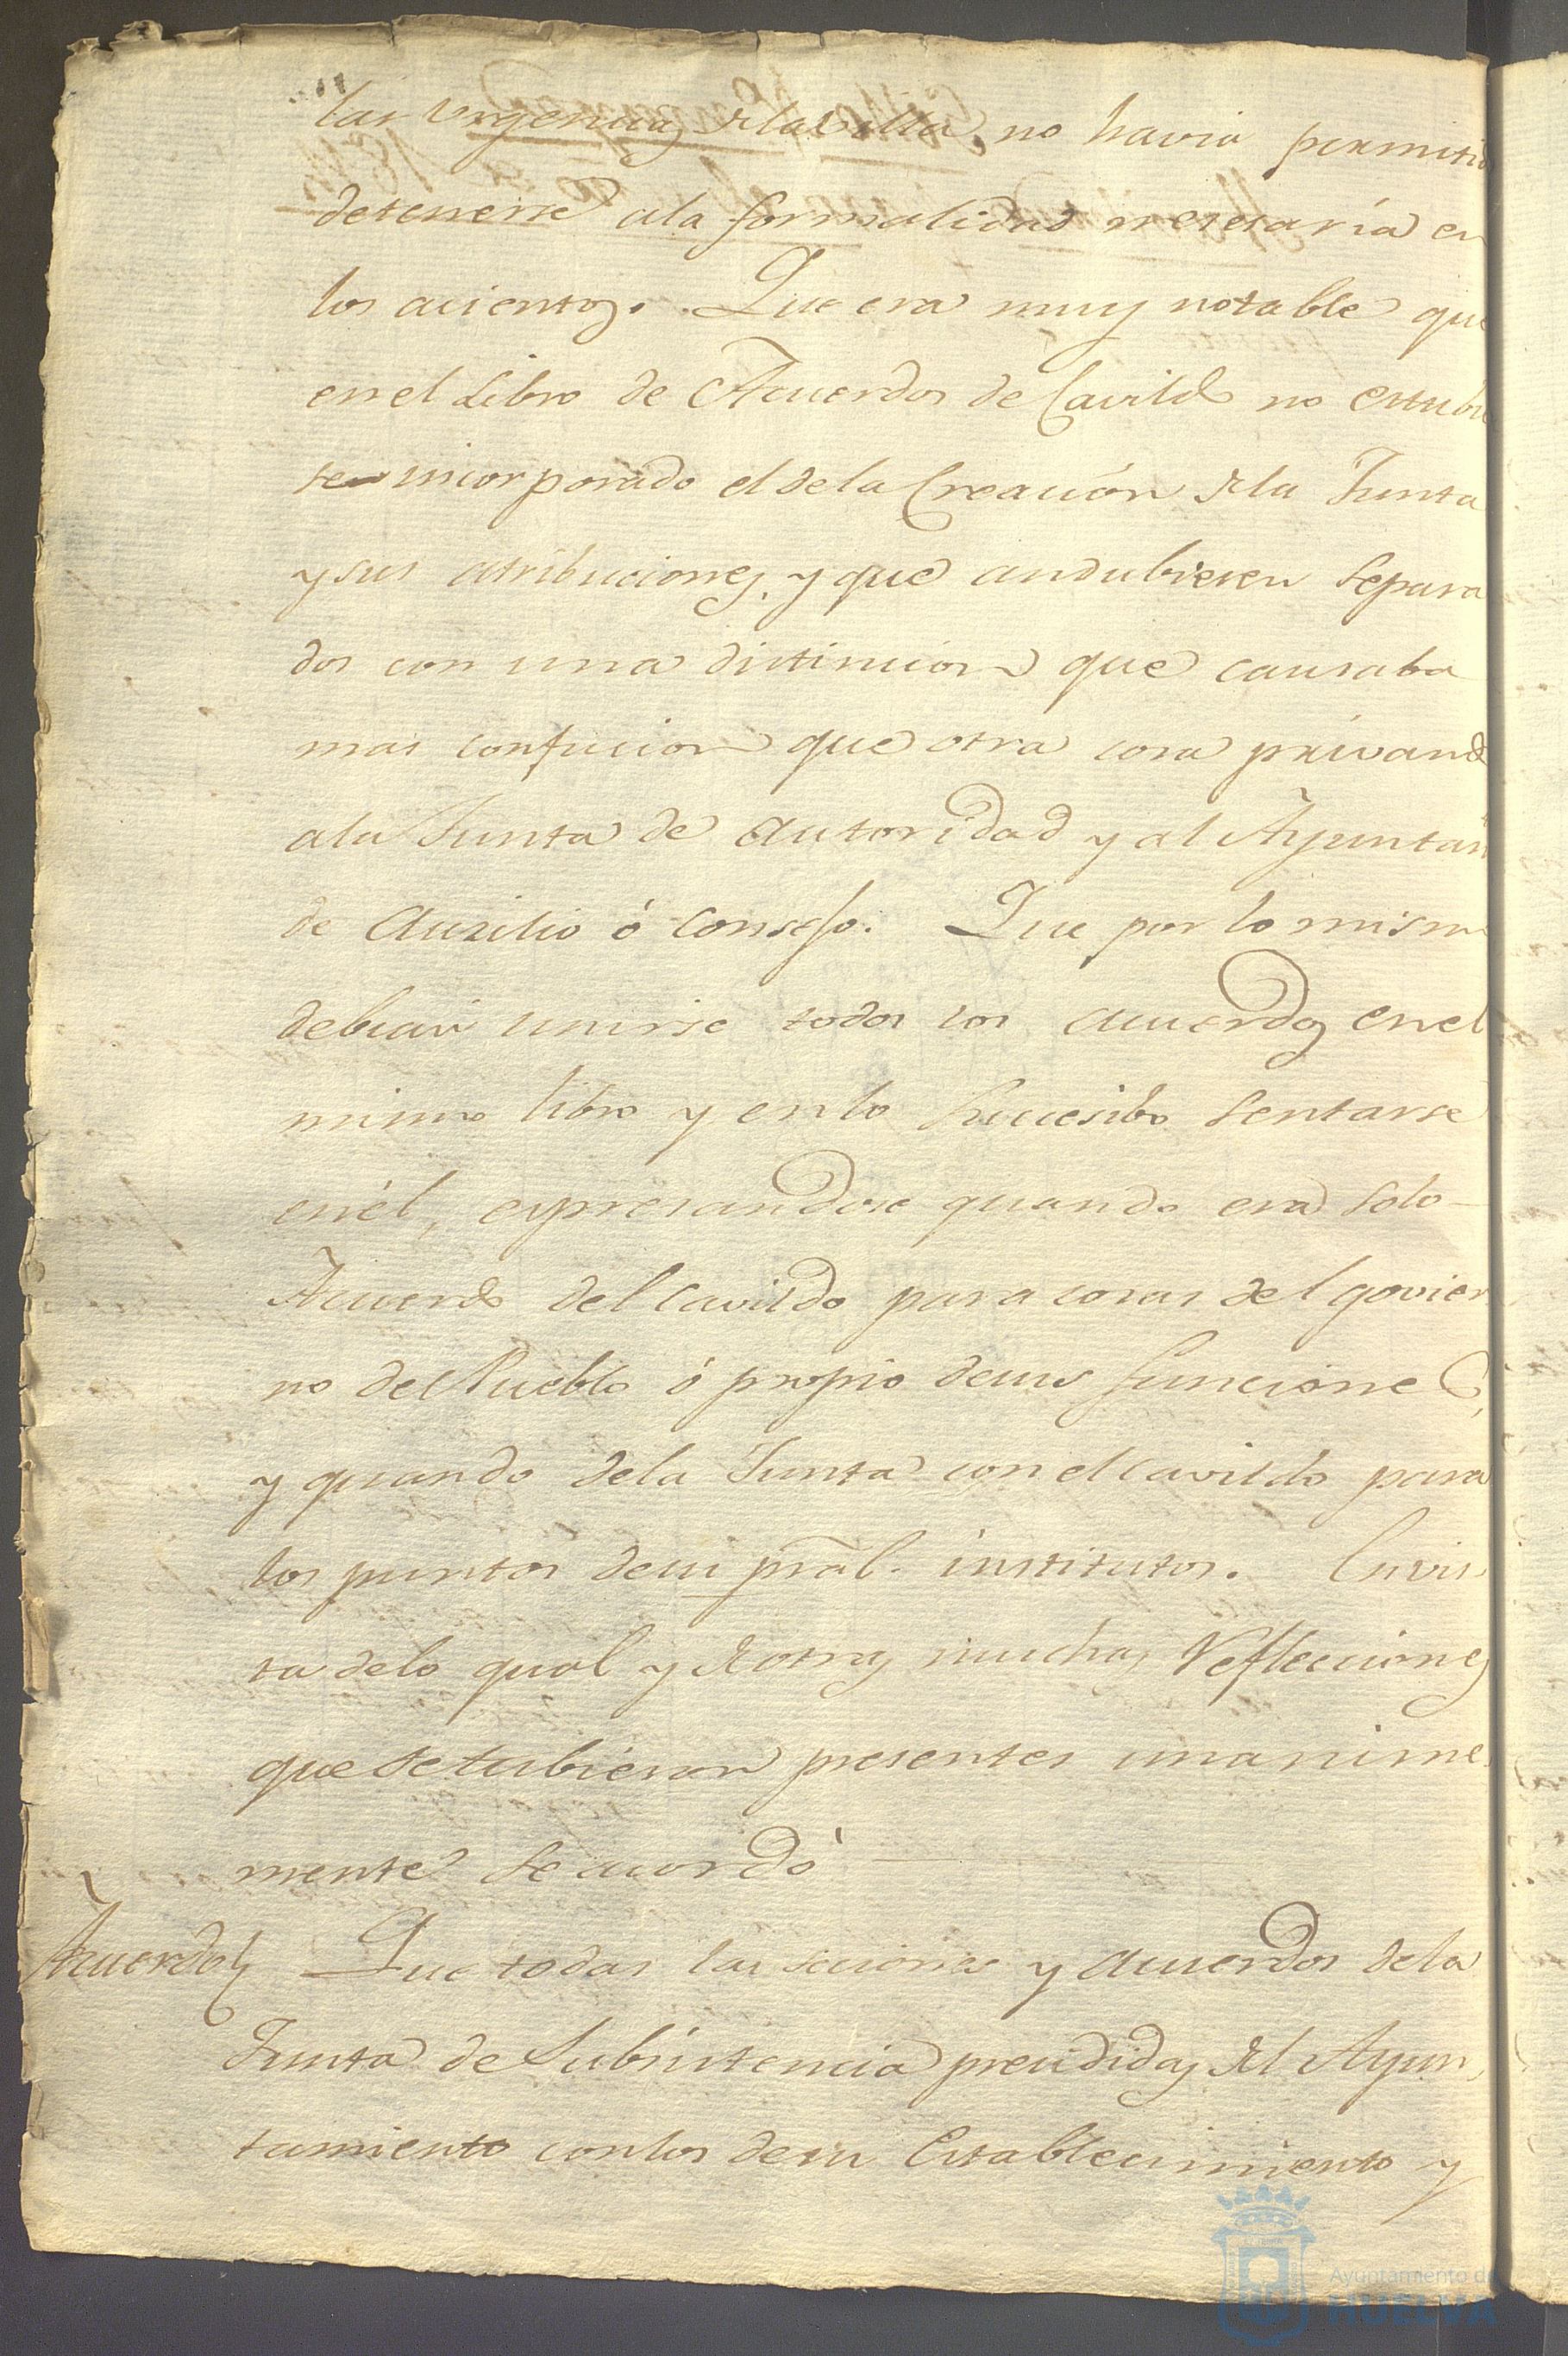 las Urgencias de la Villa, no havia permitid
detenerse ala formalidad nesesaria en
los acientos. Que era muy notable que
en el Libro de Acuerdos de Cavildo no estubie
se incorporado el dela Creación de la Junta
y sus atribuciones, y que andubiesen separa
dos con una distincion que causaba
mas confucion que otra cosa privando
ala Junta de autoridad y al Ayuntam
de Auxilio ó Consejo. Que por lo mismo
debian unirse todos los acuerdos en el
mismo libro y en lo Succesibo sentarse
en él, expresandose quando era solo
Acuerdo del Cavildo para cosas del govier
no del Pueblo ó propio desus funciones,
y quando dela Junta con el cavildo para
los puntos desu pral. institutos. En vis
ta delo qual y de otras muchas Reflecciones
que se tubieron presentes unanime
mente se acordó
Acuerdo Que todas las seciones y acuerdos dela
Junta de Subsistencia presididas del Ayun
tamiento con los desu Establecimiento y
Ayuntamiento de
HUELVA